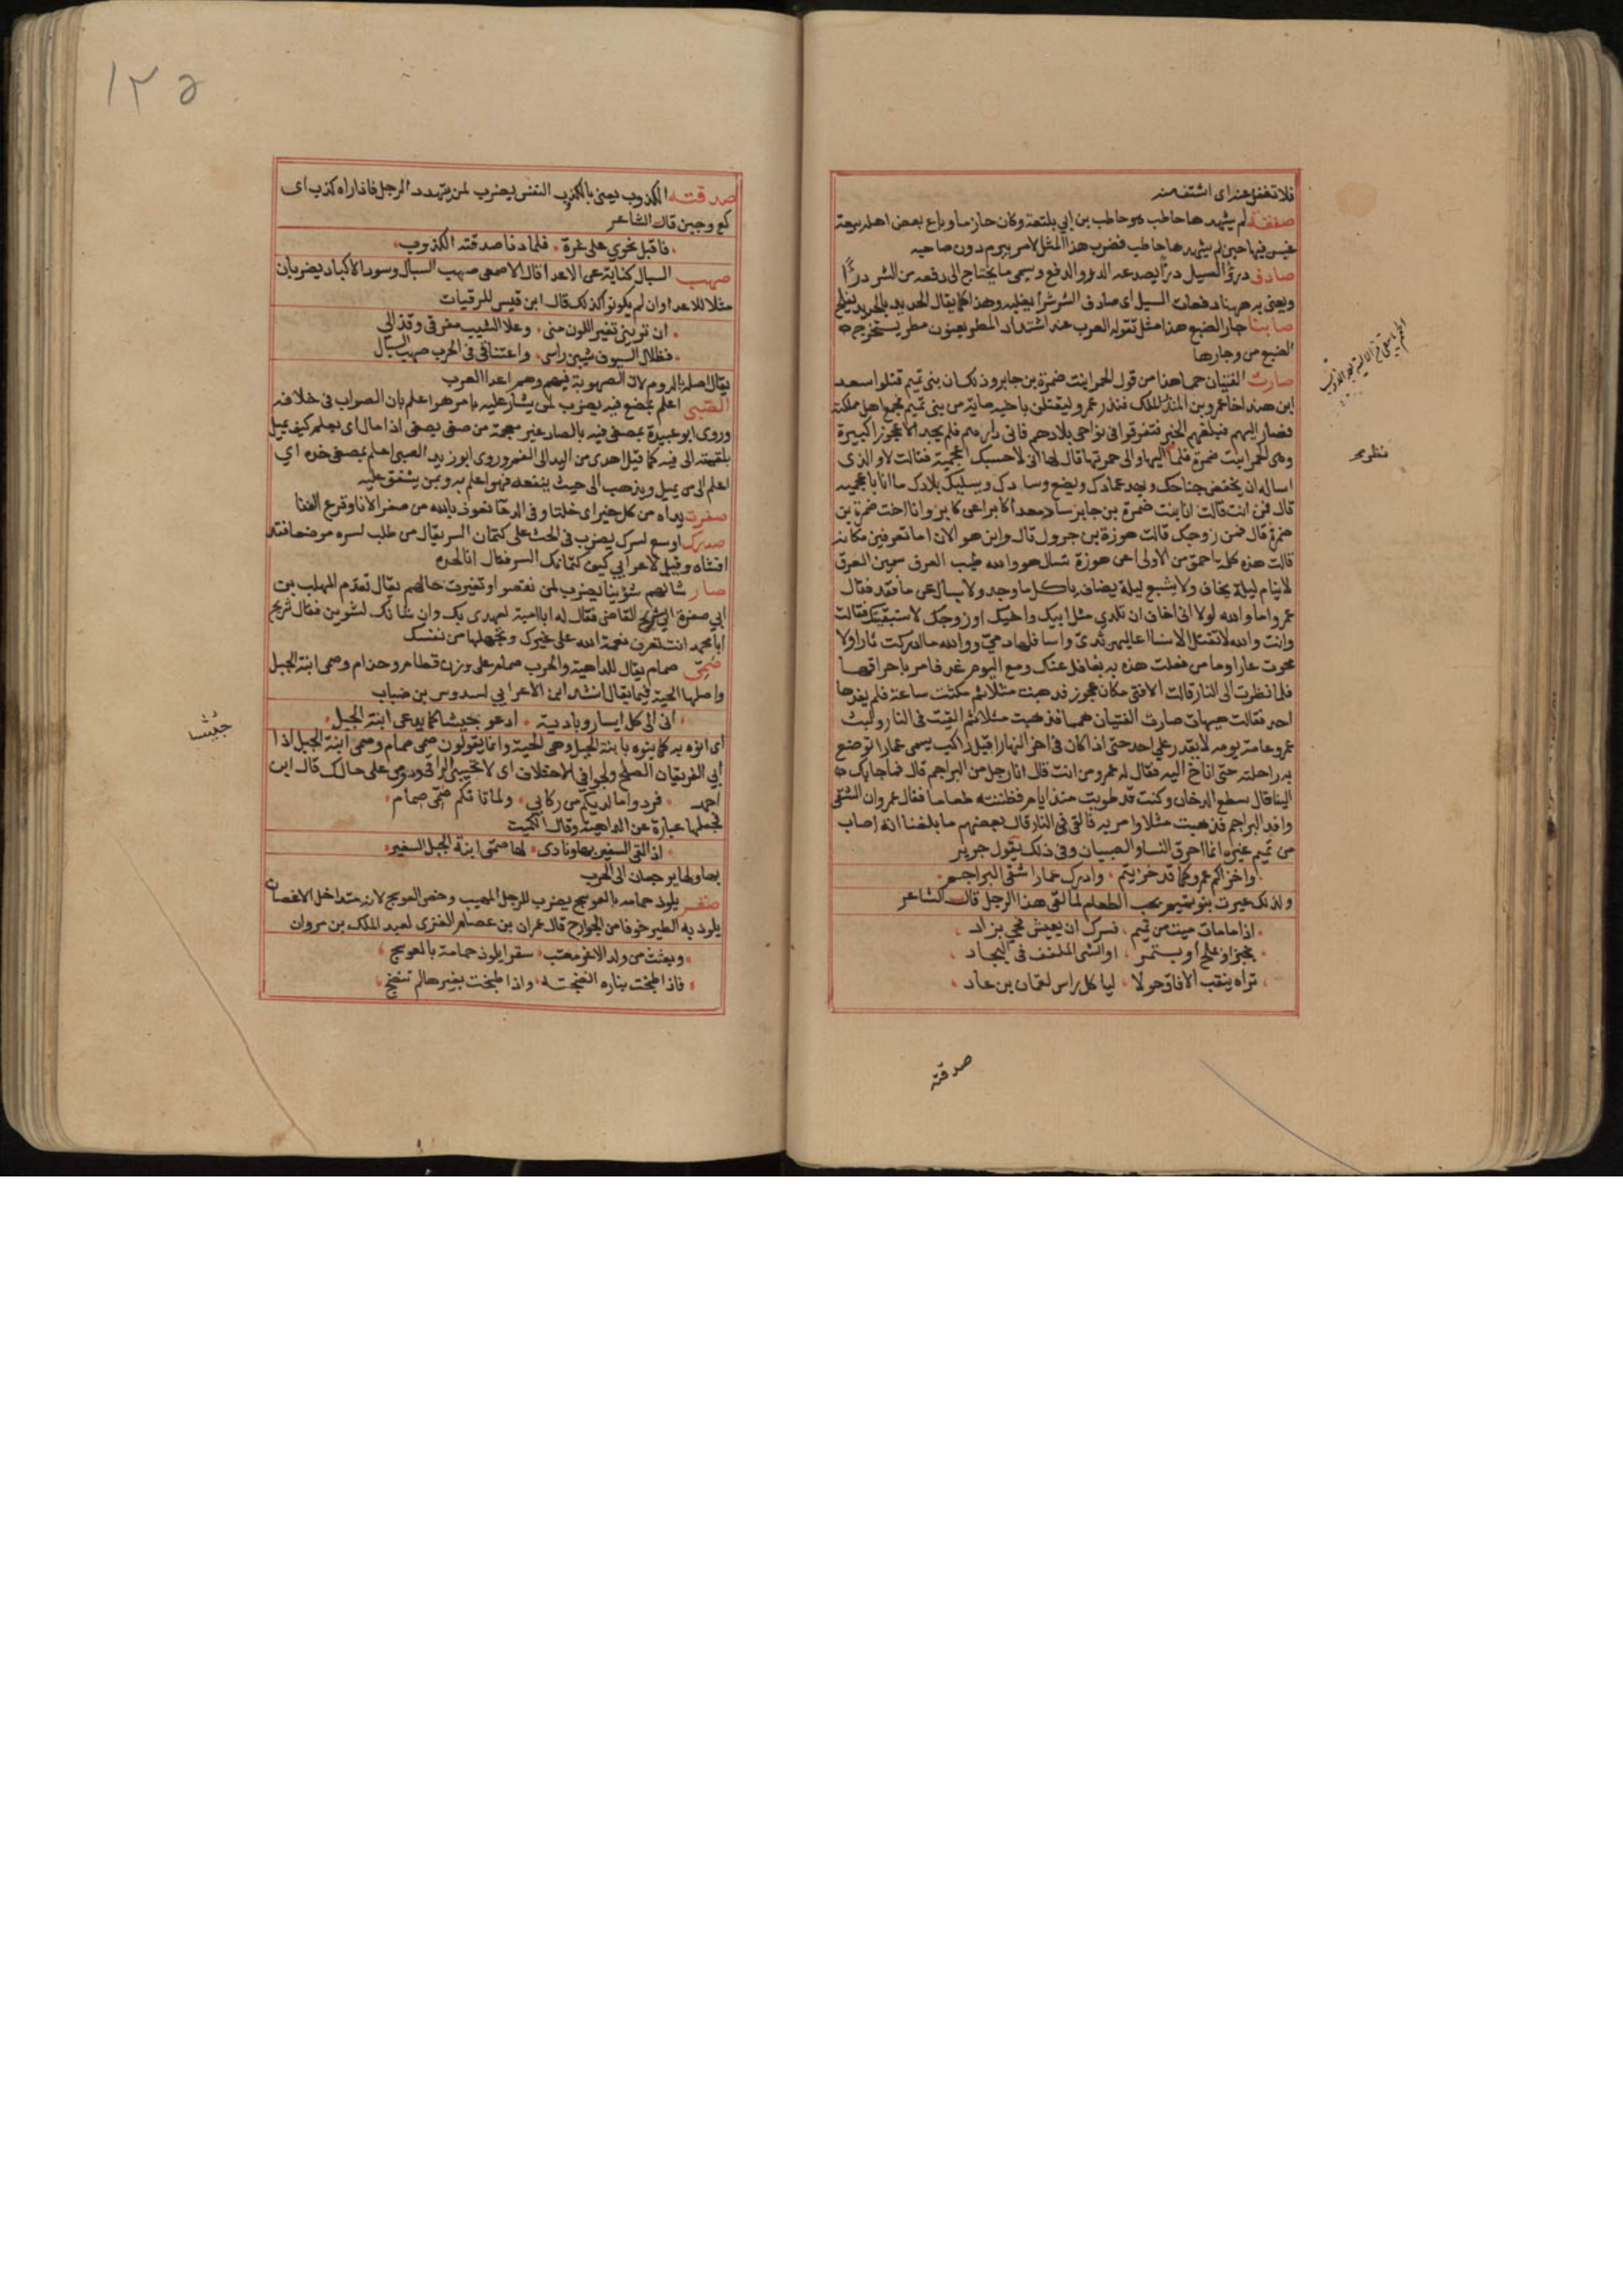 فلا تغفل عنه اى اشتف منه
صفقة لم يشهدها حاطب هو حاطب بن ابي بلتعة وكان حازما وباع بعض اهله بيعة
غبن فيها حين لم يشهدها حاطب فضرب هذا المثل لامر يبرم دون صاحبه
صادف درؤ السيل درأ يصدعه الدرو الدفع ويسمى ما يحتاج الى دفعه من الشر درأ
ويعنى به ههنا دفعات السيل اى صادف الشر شرا يغلبه وهذا كما يقال الحديد بالحديد يفلح
صابنا جار الضبع هذا مثل تقوله العرب عند اشتداد المطر يعنون مطر يستخرج
الضبع من وجارها
صارت الفتيان حمما هذا من قول الحمرا بنت ضمرة بن جابر وذلك ان بنى تميم قتلوا سعد
ابن هند اخا عمرو بن المنذر الملك فنذر عمرو ليقتلن باخيه ماية من بنى تميم فجمع اهل مملكته
فصار اليهم فبلغهم الخبر فتفرقوا فى نواحى بلادهم فاتى دارهم فلم يجد الا عجوزا كبيرة
وهى الحمرا بنت ضمرة فلما اليها والى حمرتها قال لها انى لاحسبك اعجمية فقالت لا والذى
اساله ان يخفض جناحك ويهد عمادك ويضع وسادك ويسلبك بلادك ما انا باعجمية
قال فمن انت قالت انا بنت ضمرة بن جابر ساد معدا كابرا عن كابر وانا اخت ضمرة بن
ضمرة قال فمن زوجك قالت هوزة بن جرول قال واين هو الان اما تعرفين مكانه
قالت هذه كلمة احمق من الاولى اعن هوزة تسال هو والله طيب العرق سمين العرق
لا ينام ليلة يخاف ولا يشبع ليلة يضاف ياكل ما وجد ولا يسال عن ما فقد فقال
عمرو اما والله لولا انى اخاف ان تلدي مثل ابيك واخيك او زوجك لاستبقيتك فقالت
وانت والله لا تقتل الا نسا اعاليها ثدى واسافلها دمى ووالله ما ادركت ثارا ولا
محوت عارا وما من فعلت هذه به بغافل عنك ومع اليوم غد فامر باحراقها
فلما نظرت الى النار قالت الا فتى مكان عجوز فذهبت مثلا ثم مكثت ساعة فلم يفدها
احد فقالت هيهات صارت الفتيان حمما فذهبت مثلا ثم القيت فى النار ولبث
عمرو عامة يومه لا يقدر على احد حتى اذا كان فى اخر النهار اقبل راكب يسمى عمارا توضع
به راحلته حتى اناخ اليه فقال له عمرو من انت قال انا رجل من البراجم قال فما جا بك
الينا قال سطع الدخان وكنت قد طويت منذ ايام فظننته طعاما فقال عمرو ان الشقى
وافد البراجم فذهبت مثلا وامر به فالقى فى النار قال بعضهم ما بلغنا انه اصاب
من تميم غيره انما احرق النسا والصبيان وفى ذلك يقول جرير
واخزاكم عمرو كما قد خزيتم ، وادرك عمارا شقى البراجم
ولذلك عيرت بنو تميم بحب الطعام لما لقى هذا الرجل قال الشاعر
اذا ما مات ميت من تميم ، فسرك ان يعيش فجي بزاد
بخبز او بلحم او بتمر ، او الشى الملفف فى البجاد
تراه ينقب الافاق حولا ، لياكل راس لقمان بن عاد
صدقته
نظر صح
١٢٥
صدقته الكذوب يعنى بالكذوب النفس يضرب لمن يتهدد الرجل فاذا راه كذب اى
كع وجبن قال الشاعر
فاقبل نحوي على غرة ، فلما دنا صدقته الكذوب
صهب السبال كناية عن الاعدا قال الاصمعى صهب السبال وسود الاكباد يضربان
مثلا للاعدا وان لم يكونوا كذلك قال ابن قيس الرقيات
ان توينى تغير اللون منى ، وعلا الشيب مفرقى وقذالي
فظلال السيوف شيبن راسى ، واعتناقى فى الحرب صهب السبال
يقال اصله الروم لان الصهوبة فيهم وهم اعدا العرب
الصبى اعلم بمضغ فيه يضرب لمن يشار عليه بامر هو اعلم بان الصواب فى خلافه
وروى ابو عبيدة بمصغى فيه بالصاد غير معجمة من صغى يصغى اذا مال اى يعلم كيف يميل
بلقمته الى فيه كما قيل اهدى من اليد الى الفم وروى ابو زيد الصبى اعلم بمصغى خده اي
اعلم الى من يميل ويذهب الى حيث ينفعه فهو اعلم به وبمن يشفق عليه
صفرت يداه من كل خير اى خلتا وفى الدعا نعوذ بالله من صفر الانا وقرع الفنا
صدرك اوسع لسرك يضرب فى الحث على كتمان السر يقال من طلب لسره موضعا فقد
افشاه وقيل لاعرابي كيف كتمانك السر فقال انا لحده
صار شانهم شوينا يضرب لمن نقصوا وتغيرت حالهم يقال تقدم المهلب بن
ابي صفرة الى شريح القاضى فقال له ابا امية لعهدى بك وان شانك لشوين فقال شريح
ابا محمد انت تعرف نعمة الله على غيرك وتجهلها من نفسك
صمى صمام يقال للداهية والحرب صمام على وزن قطام وحذام وصمى ابنة الجبل
واصلها الحية فيما يقال انشد ابن الاعرابي لسدوس بن ضباب
انى الى كل ايسار وبادية ، ادعو حبيشا كما يدعى ابنة الجبل
اى انوه به كما ينوه بابنة الجبل وهى الحية وانما يقولون صمى صمام وصمى ابنة الجبل اذا
ابي الفريقان الصلح ولجوا فى الاختلاف اى لا تجيبى الراقى ودومى على حالك قال ابن
احمر ، فردوا ما لديكم من ركابي ، ولما تاتكم صمى صمام
فجعلها عبارة عن الداهية وقال الكميت
اذا لقى السفير بها ونادى ، لها صمى ابنة الجبل السفير
بها ولها يرجعان الى الحرب
صقر يلوذ حمامه بالعوسج يضرب للرجل المهيب وخص العوسج لانه متداخل الاغصان
يلوذ به الطير خوفا من الجوارح قال عمران بن عصام العنزى لعبد الملك بن مروان
وبعثت من ولد الاغر معتب ، سقرا يلوذ حمامه بالعوسج
فاذا طبخت بناره انضجته ، واذا طبخت بغيرها لم تنضج
حبيشا